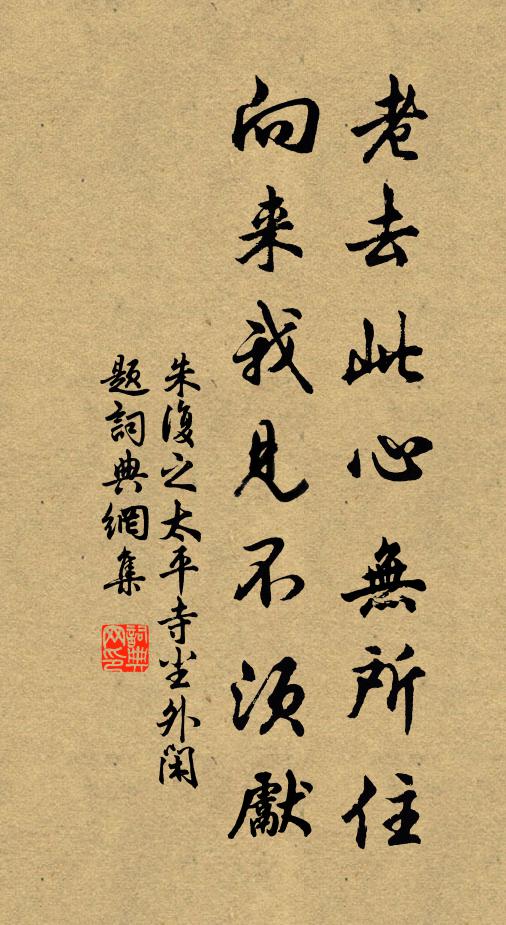 老去此心無所住
向来我見不須獻
朱復之太平寺尘外閑
题詞典網集
詞典网印